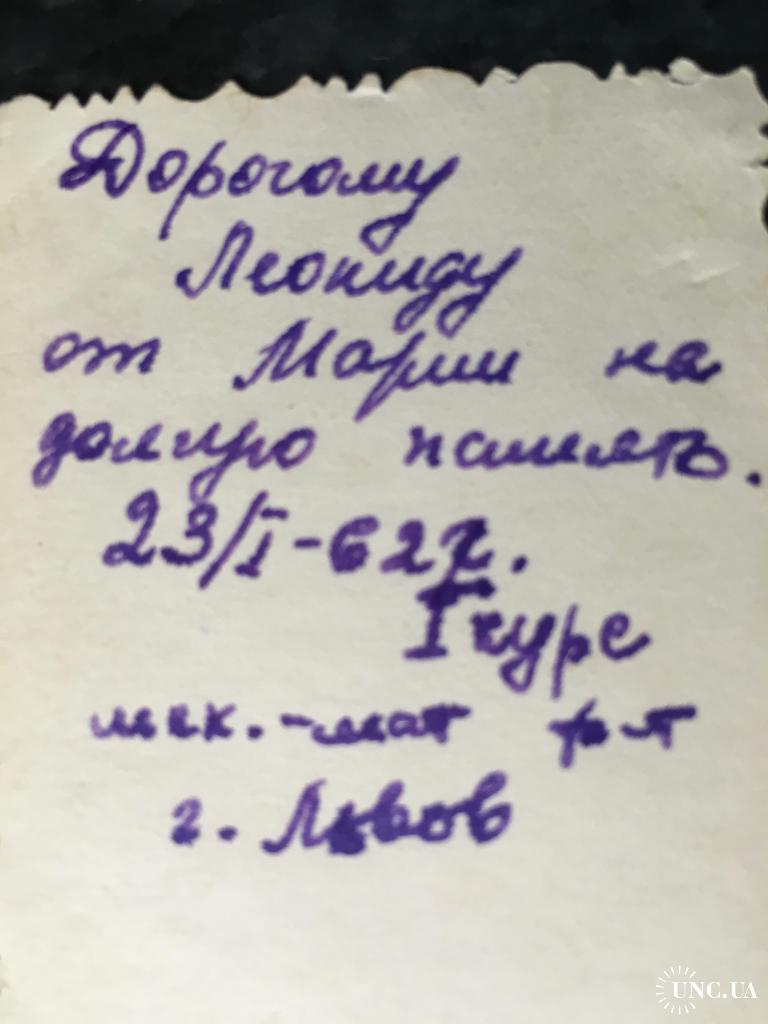 Дорогому
Леониду
от Марии на
долгую память.
23/I-62г.
I курс
мех.-мат ф-т
г. Львов
UNC.UA